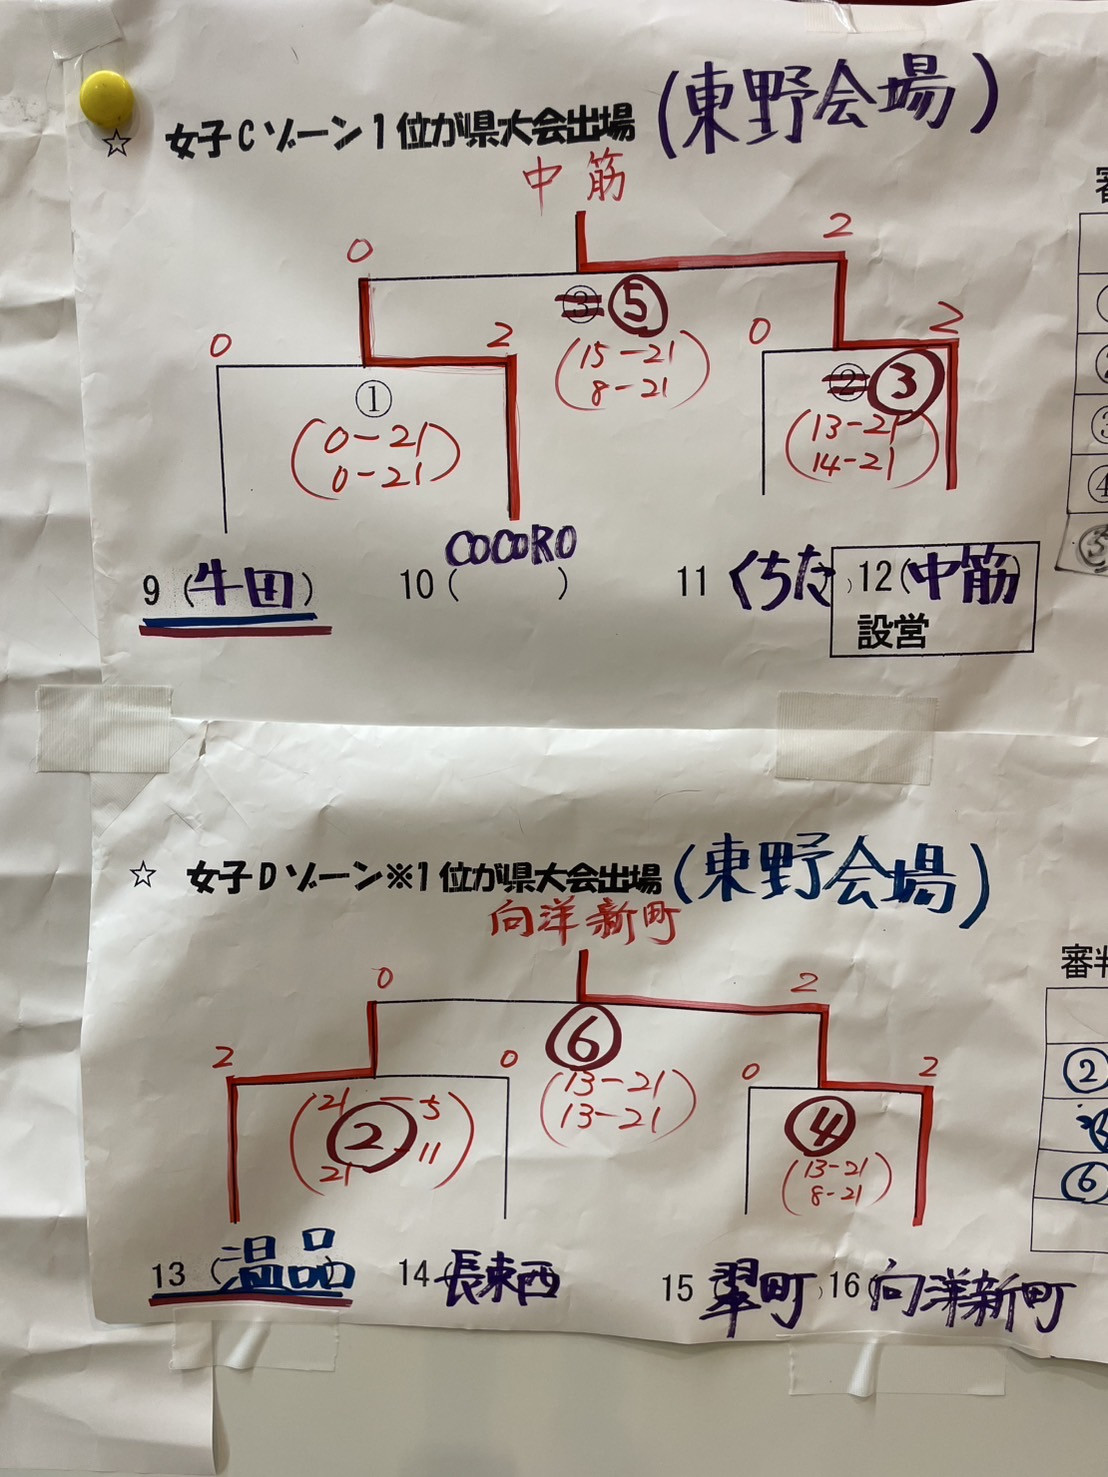 ☆ 女子Cゾーン1位が県大会出場 (東野会場)
中筋
0 2
③ ⑤
(15-21
8-21)
0 2
①
(0-21
0-21)
0 2
② ③
(13-21
14-21)
9 (牛田) 10 (COCORO) 11 くちた) 12 (中筋)
設営
①
②
③
④
⑤
☆ 女子Dゾーン※1位が県大会出場 (東野会場)
向洋新町
0 2
⑥
(13-21
13-21)
2 0
②
(21-5
21-11)
0 2
④
(13-21
8-21)
13 (温品) 14 (長束西 15 翠町) 16 (向洋新町
審判
②
⑥